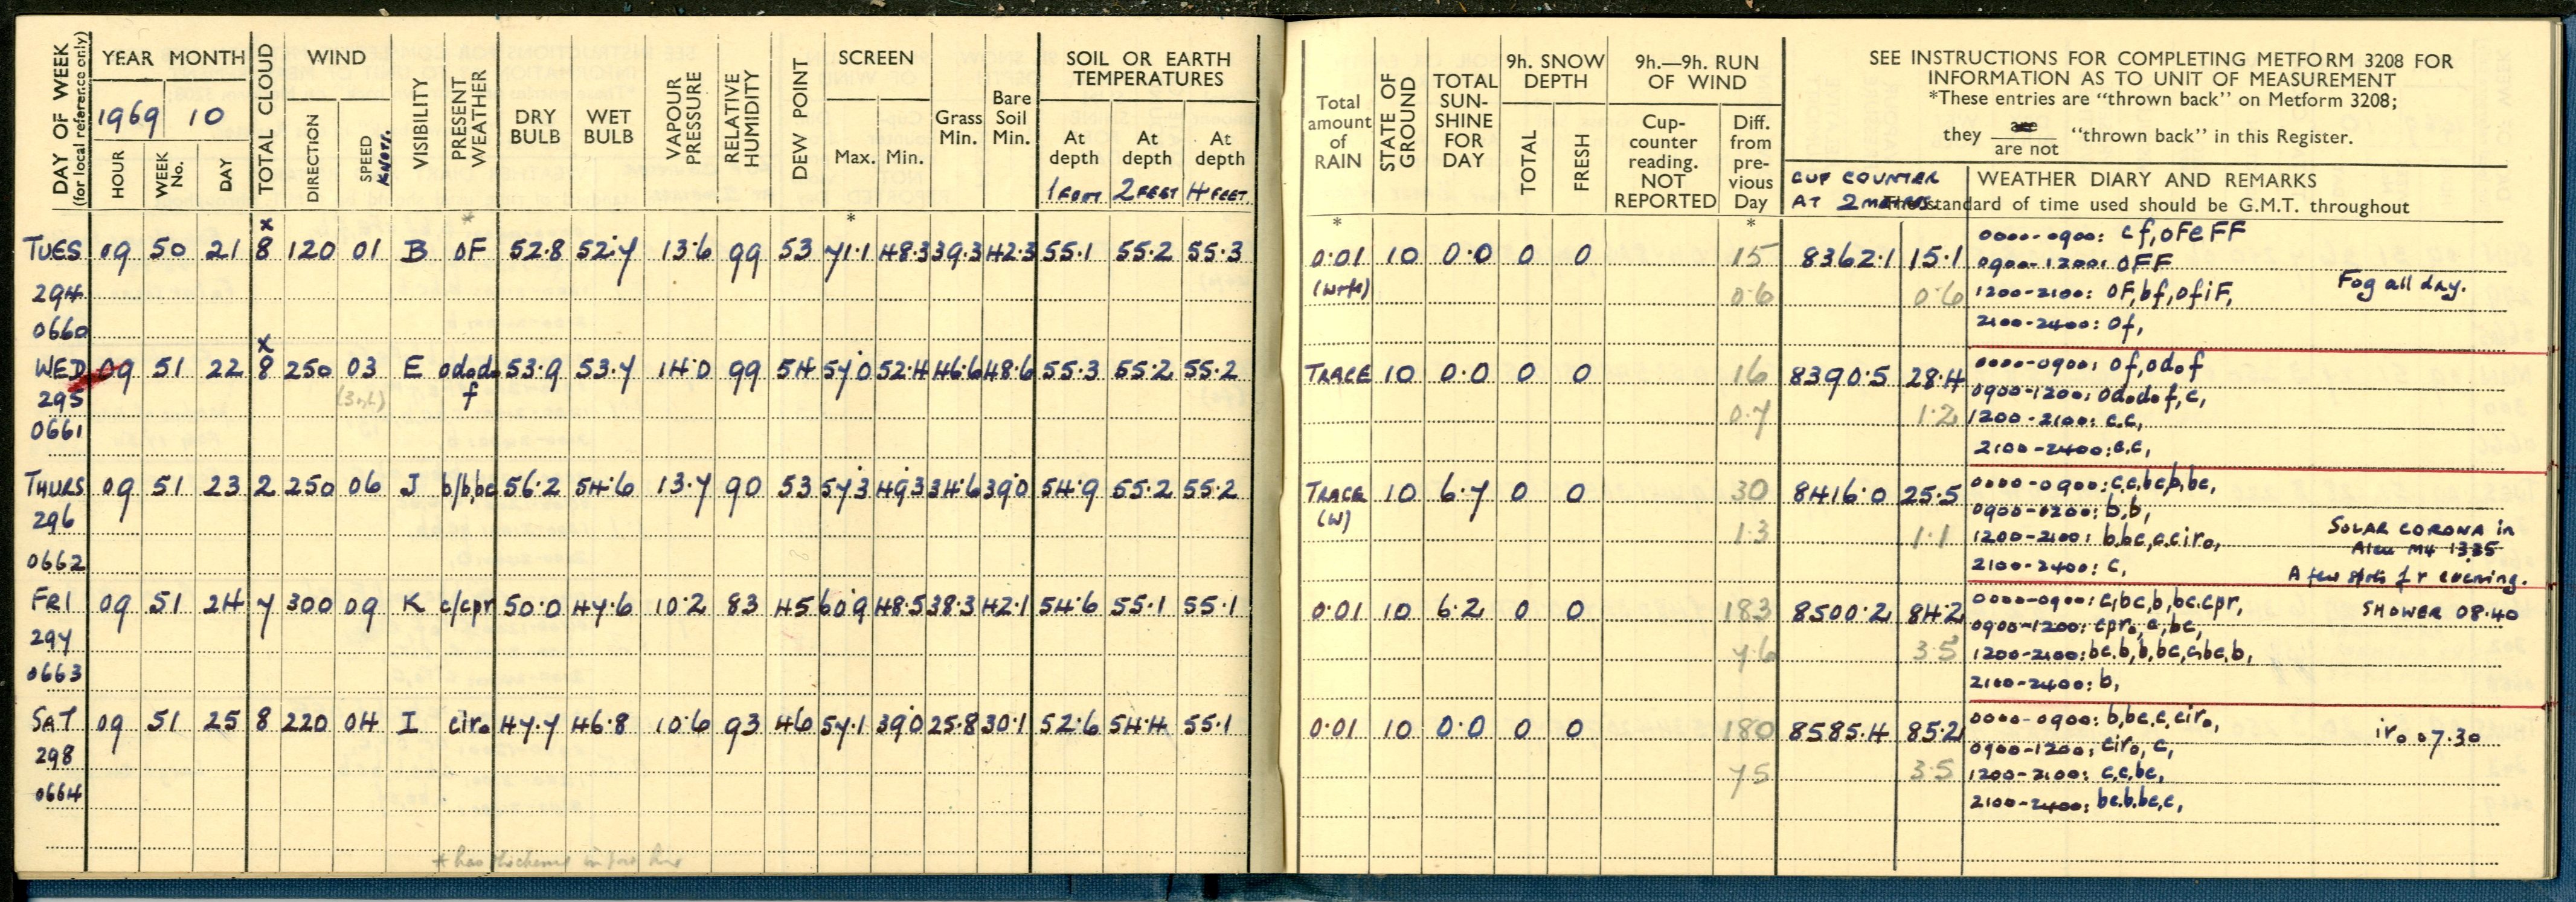 DAY OF WEEK (for local reference only)
YEAR MONTH
1969 10
HOUR WEEK No. DAY
TOTAL CLOUD
WIND
DIRECTION SPEED KNOTS.
VISIBILITY
PRESENT WEATHER
DRY BULB
WET BULB
VAPOUR PRESSURE
RELATIVE HUMIDITY
DEW POINT
SCREEN
Max. Min.
Grass Min.
Bare Soil Min.
SOIL OR EARTH TEMPERATURES
At depth 1 FOOT At depth 2 FEET At depth 4 FEET
* *
x
TUES 09 50 21 8 120 01 B OF 52.8 52.7 13.6 99 53 71.1 48.3 39.3 42.3 55.1 55.2 55.3
294
0660
x
WED 09 51 22 8 250 03 E ododo 53.9 53.7 14.0 99 54 57.0 52.4 46.6 48.6 55.3 55.2 55.2
295 f
0661
THURS 09 51 23 2 250 06 J b/b,bc 56.2 54.6 13.7 90 53 57.3 49.3 34.6 39.0 54.9 55.2 55.2
296
0662
FRI 09 51 24 7 300 09 K c/cpr 50.0 47.6 10.2 83 45 60.9 48.5 38.3 42.1 54.6 55.1 55.1
297
0663
SAT 09 51 25 8 220 04 I ciro 47.7 46.8 10.6 93 46 57.1 39.0 25.8 30.1 52.6 54.4 55.1
298
0664
Total amount of RAIN
STATE OF GROUND
TOTAL SUN-SHINE FOR DAY
9h. SNOW DEPTH
TOTAL FRESH
9h.—9h. RUN OF WIND
Cup-counter reading. NOT REPORTED
Diff. from pre-vious Day
SEE INSTRUCTIONS FOR COMPLETING METFORM 3208 FOR
INFORMATION AS TO UNIT OF MEASUREMENT
*These entries are "thrown back" on Metform 3208;
they are / are not "thrown back" in this Register.
CUP COUNTER
AT 2 METRES.
WEATHER DIARY AND REMARKS
The standard of time used should be G.M.T. throughout
* *
0.01 10 0.0 0 0 15 8362.1 15.1
0.6 0.6
0000-0900: cf,oFeFF
0900-1200: OFF
1200-2100: OF,bf,ofiF, Fog all day.
2100-2400: Of,
TRACE 10 0.0 0 0 16 8390.5 28.4
0.7 1.2
0000-0900: Of,odof
0900-1200: Ododof,c,
1200-2100: c.c,
2100-2400: c.c,
TRACE 10 6.7 0 0 30 8416.0 25.5
(W) 1.3 1.1
0000-0900: c,c,bcb,bc,
b,b,
1200-2100: b,bc,c,ciro, SOLAR CORONA in
2100-2400: c, A few spots of r evening.
0.01 10 6.2 0 0 183 8500.2 84.2
7.6 3.5
0000-0900: c,bc,b,bc.cpr, SHOWER 08.40
0900-1200: cpro,c,bc,
1200-2100: bc.b,b,bc,c,bc,b,
2100-2400: b,
0.01 10 0.0 0 0 180 8585.4 85.2
7.5 3.5
0000-0900: b,bc,c,ciro, iro 07.30
0900-1200: ciro, c,
1200-2100: c,c,bc,
2100-2400: bc.b.bc,c,